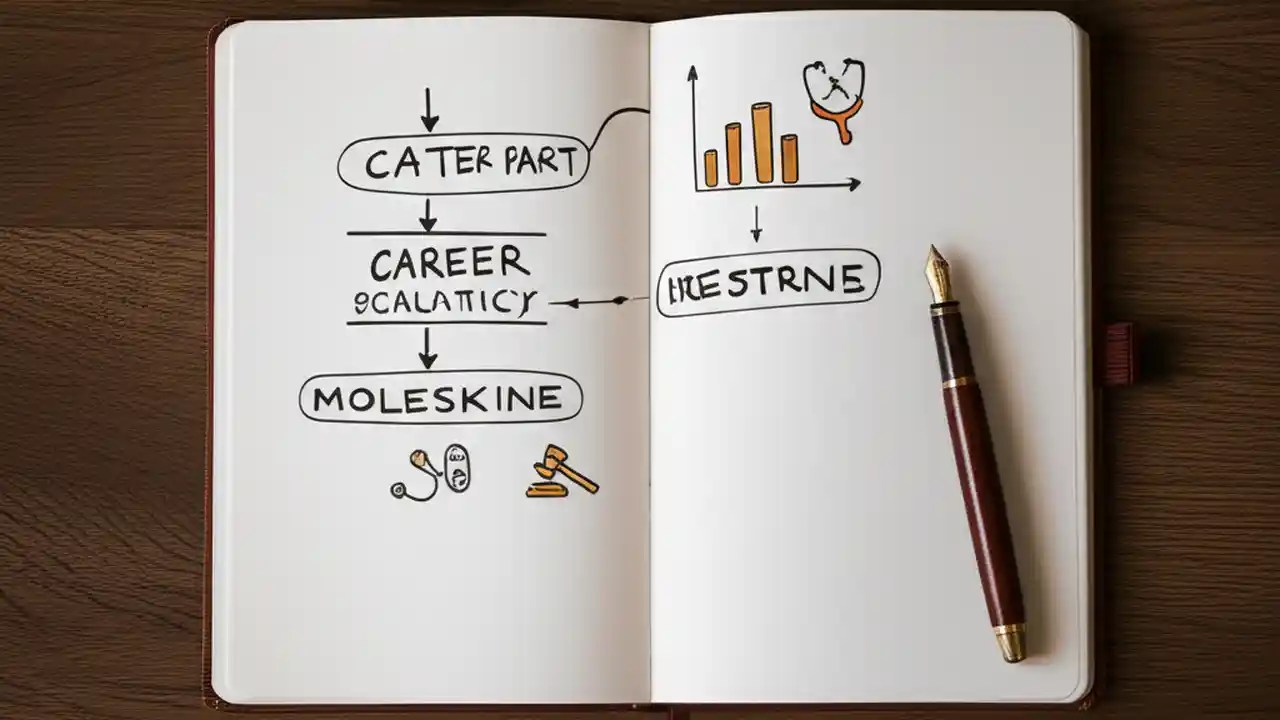 CATER PART
CAREER
SCALATICY
MOLESKINE